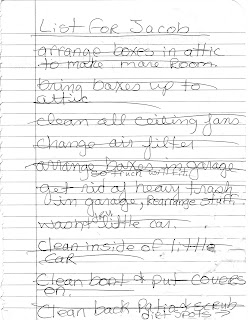 List For Jacob
arrange boxes in attic
to make more room.
bring boxes up to
attic
clean all ceiling fans
change air filter
arrange boxes in garage
get rid of heavy trash
in garage, Rearrange stuff.
wash little car.
Clean inside of little
car
Clean boat & put covers
on.
Clean back patio & scrub
dirt spots